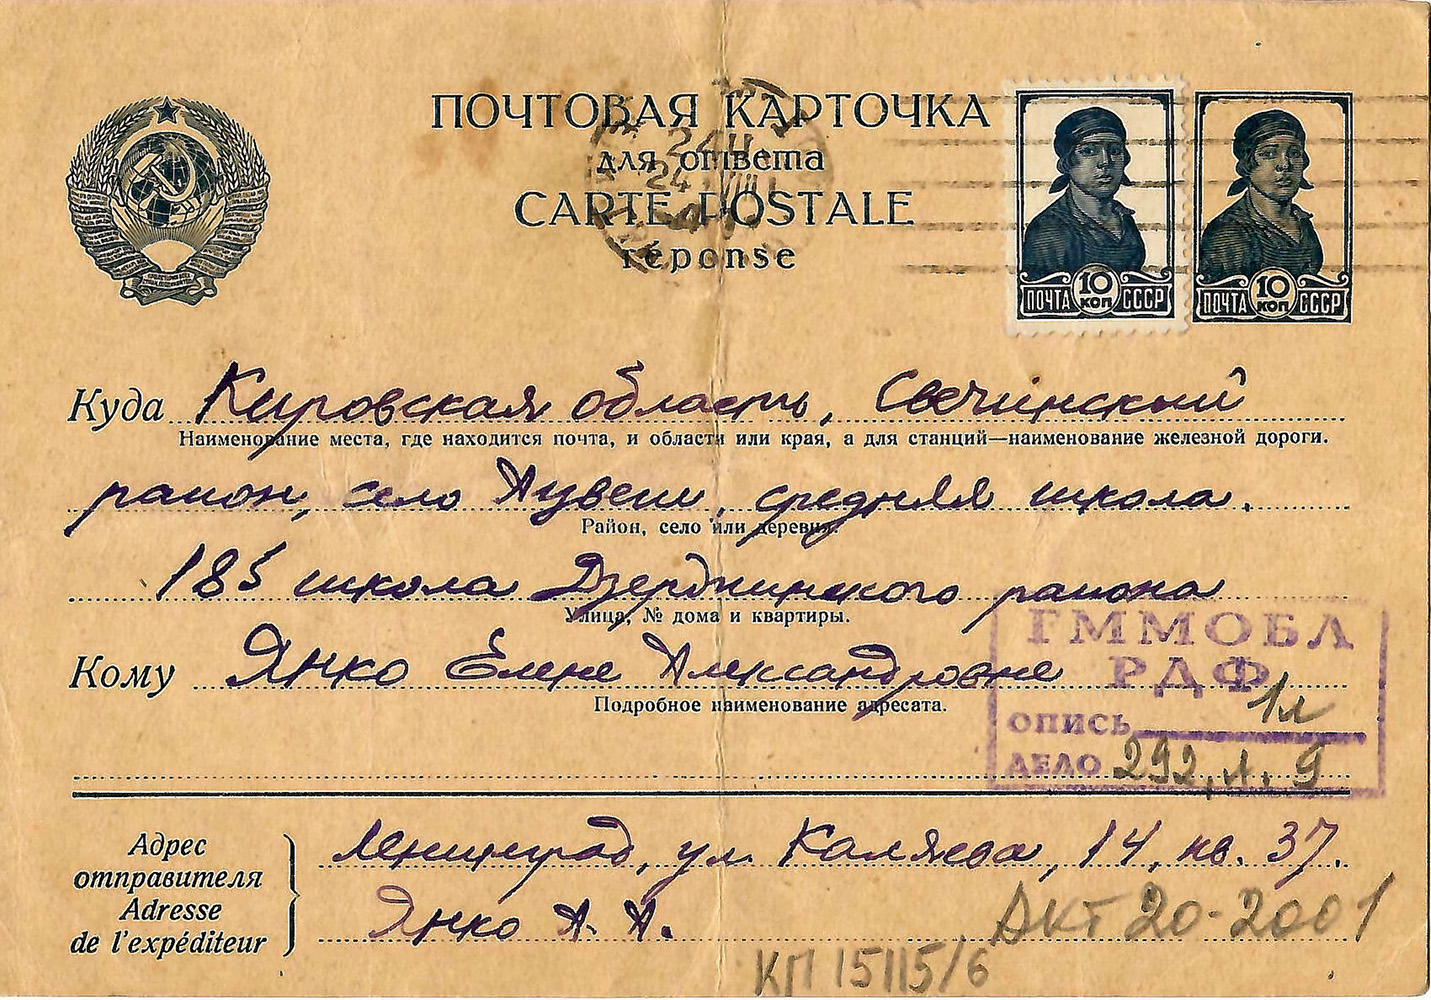 ПОЧТОВАЯ КАРТОЧКА
для ответа
CARTE POSTALE
reponse
24 VIII
10 КОП
ПОЧТА СССР
10 КОП
ПОЧТА СССР
Куда Кировская область, Свечинский
Наименование места, где находится почта, и области или края, а для станций—наименование железной дороги.
район, село Ацвеш, средняя школа.
Район, село или деревня.
185 школа Дзержинского района
Улица, № дома и квартиры.
Кому Янко Елене Александровне
Подробное наименование адресата.
ГММОБЛ
РДФ
ОПИСЬ 1л
ДЕЛО 292, л. 9
Адрес отправителя
Adresse de l'expéditeur
Ленинград, ул. Каляева, 14, кв. 37.
Янко А. А.
АКТ 20-2001
КП 15115/6